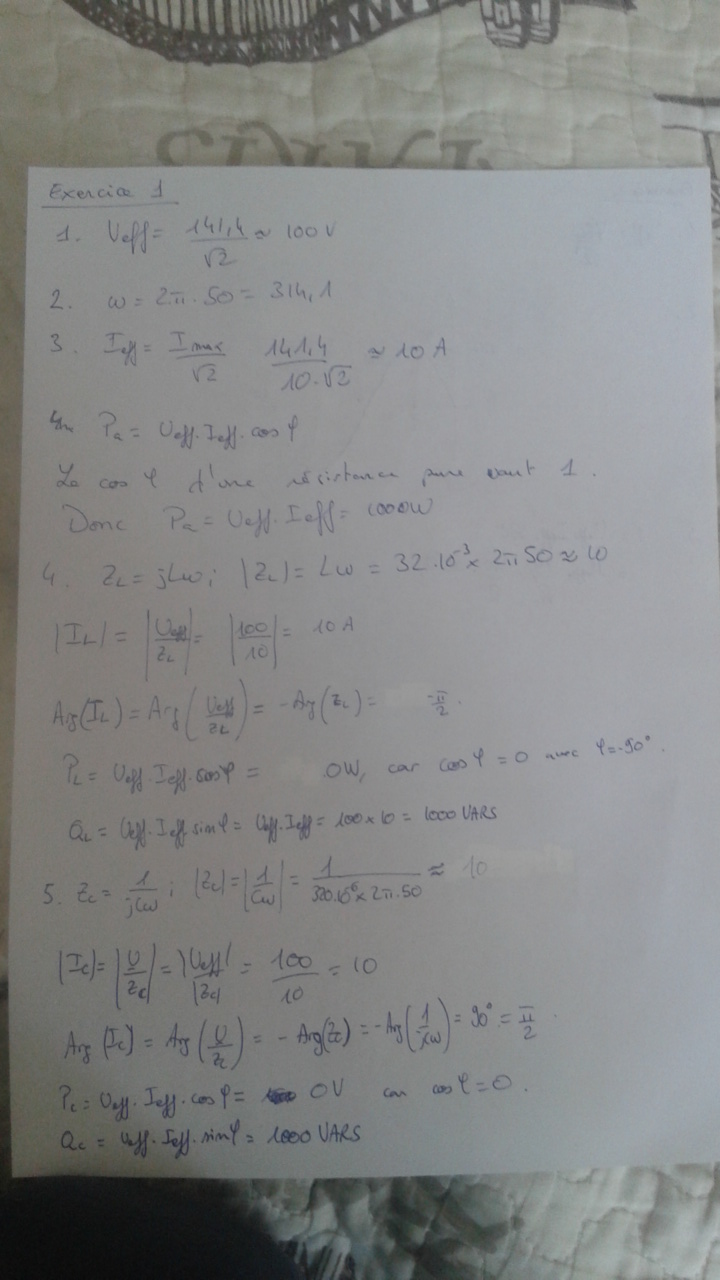 Exercice 1
1. Ueff = 141,4 / √2 ≈ 100 V
2. ω = 2π . 50 = 314,1
3. Ieff = Imax / √2 141,4 / 10.√2 ≈ 10 A
Pa = Ueff.Ieff.cos φ
Le cos φ d'une résistance pure vaut 1.
Donc Pa = Ueff.Ieff = 1000W
4. ZL = jLω ; |ZL| = Lω = 32.10⁻³ × 2π 50 ≈ 10
|IL| = |Ueff / ZL| = |100 / 10| = 10 A
Arg(IL) = Arg(Ueff / ZL) = -Arg(ZL) = -π/2.
PL = Ueff.Ieff.cosφ = 0W, car cos φ = 0 avec φ=-90°.
QL = Ueff.Ieff.sinφ = Ueff.Ieff = 100 × 10 = 1000 VARS
5. Zc = 1 / jCω ; |Zc| = |1 / Cω| = 1 / 320.10⁻⁶ × 2π.50 ≈ 10
|Ic| = |U / Zc| = |Ueff| / |Zc| = 100 / 10 = 10
Arg(Ic) = Arg(U / Zc) = -Arg(Zc) = -Arg(1 / jCω) = 90° = π/2.
Pc = Ueff.Ieff.cos φ = 0V car cos φ = 0.
Qc = Ueff.Ieff.sinφ = 1000 VARS